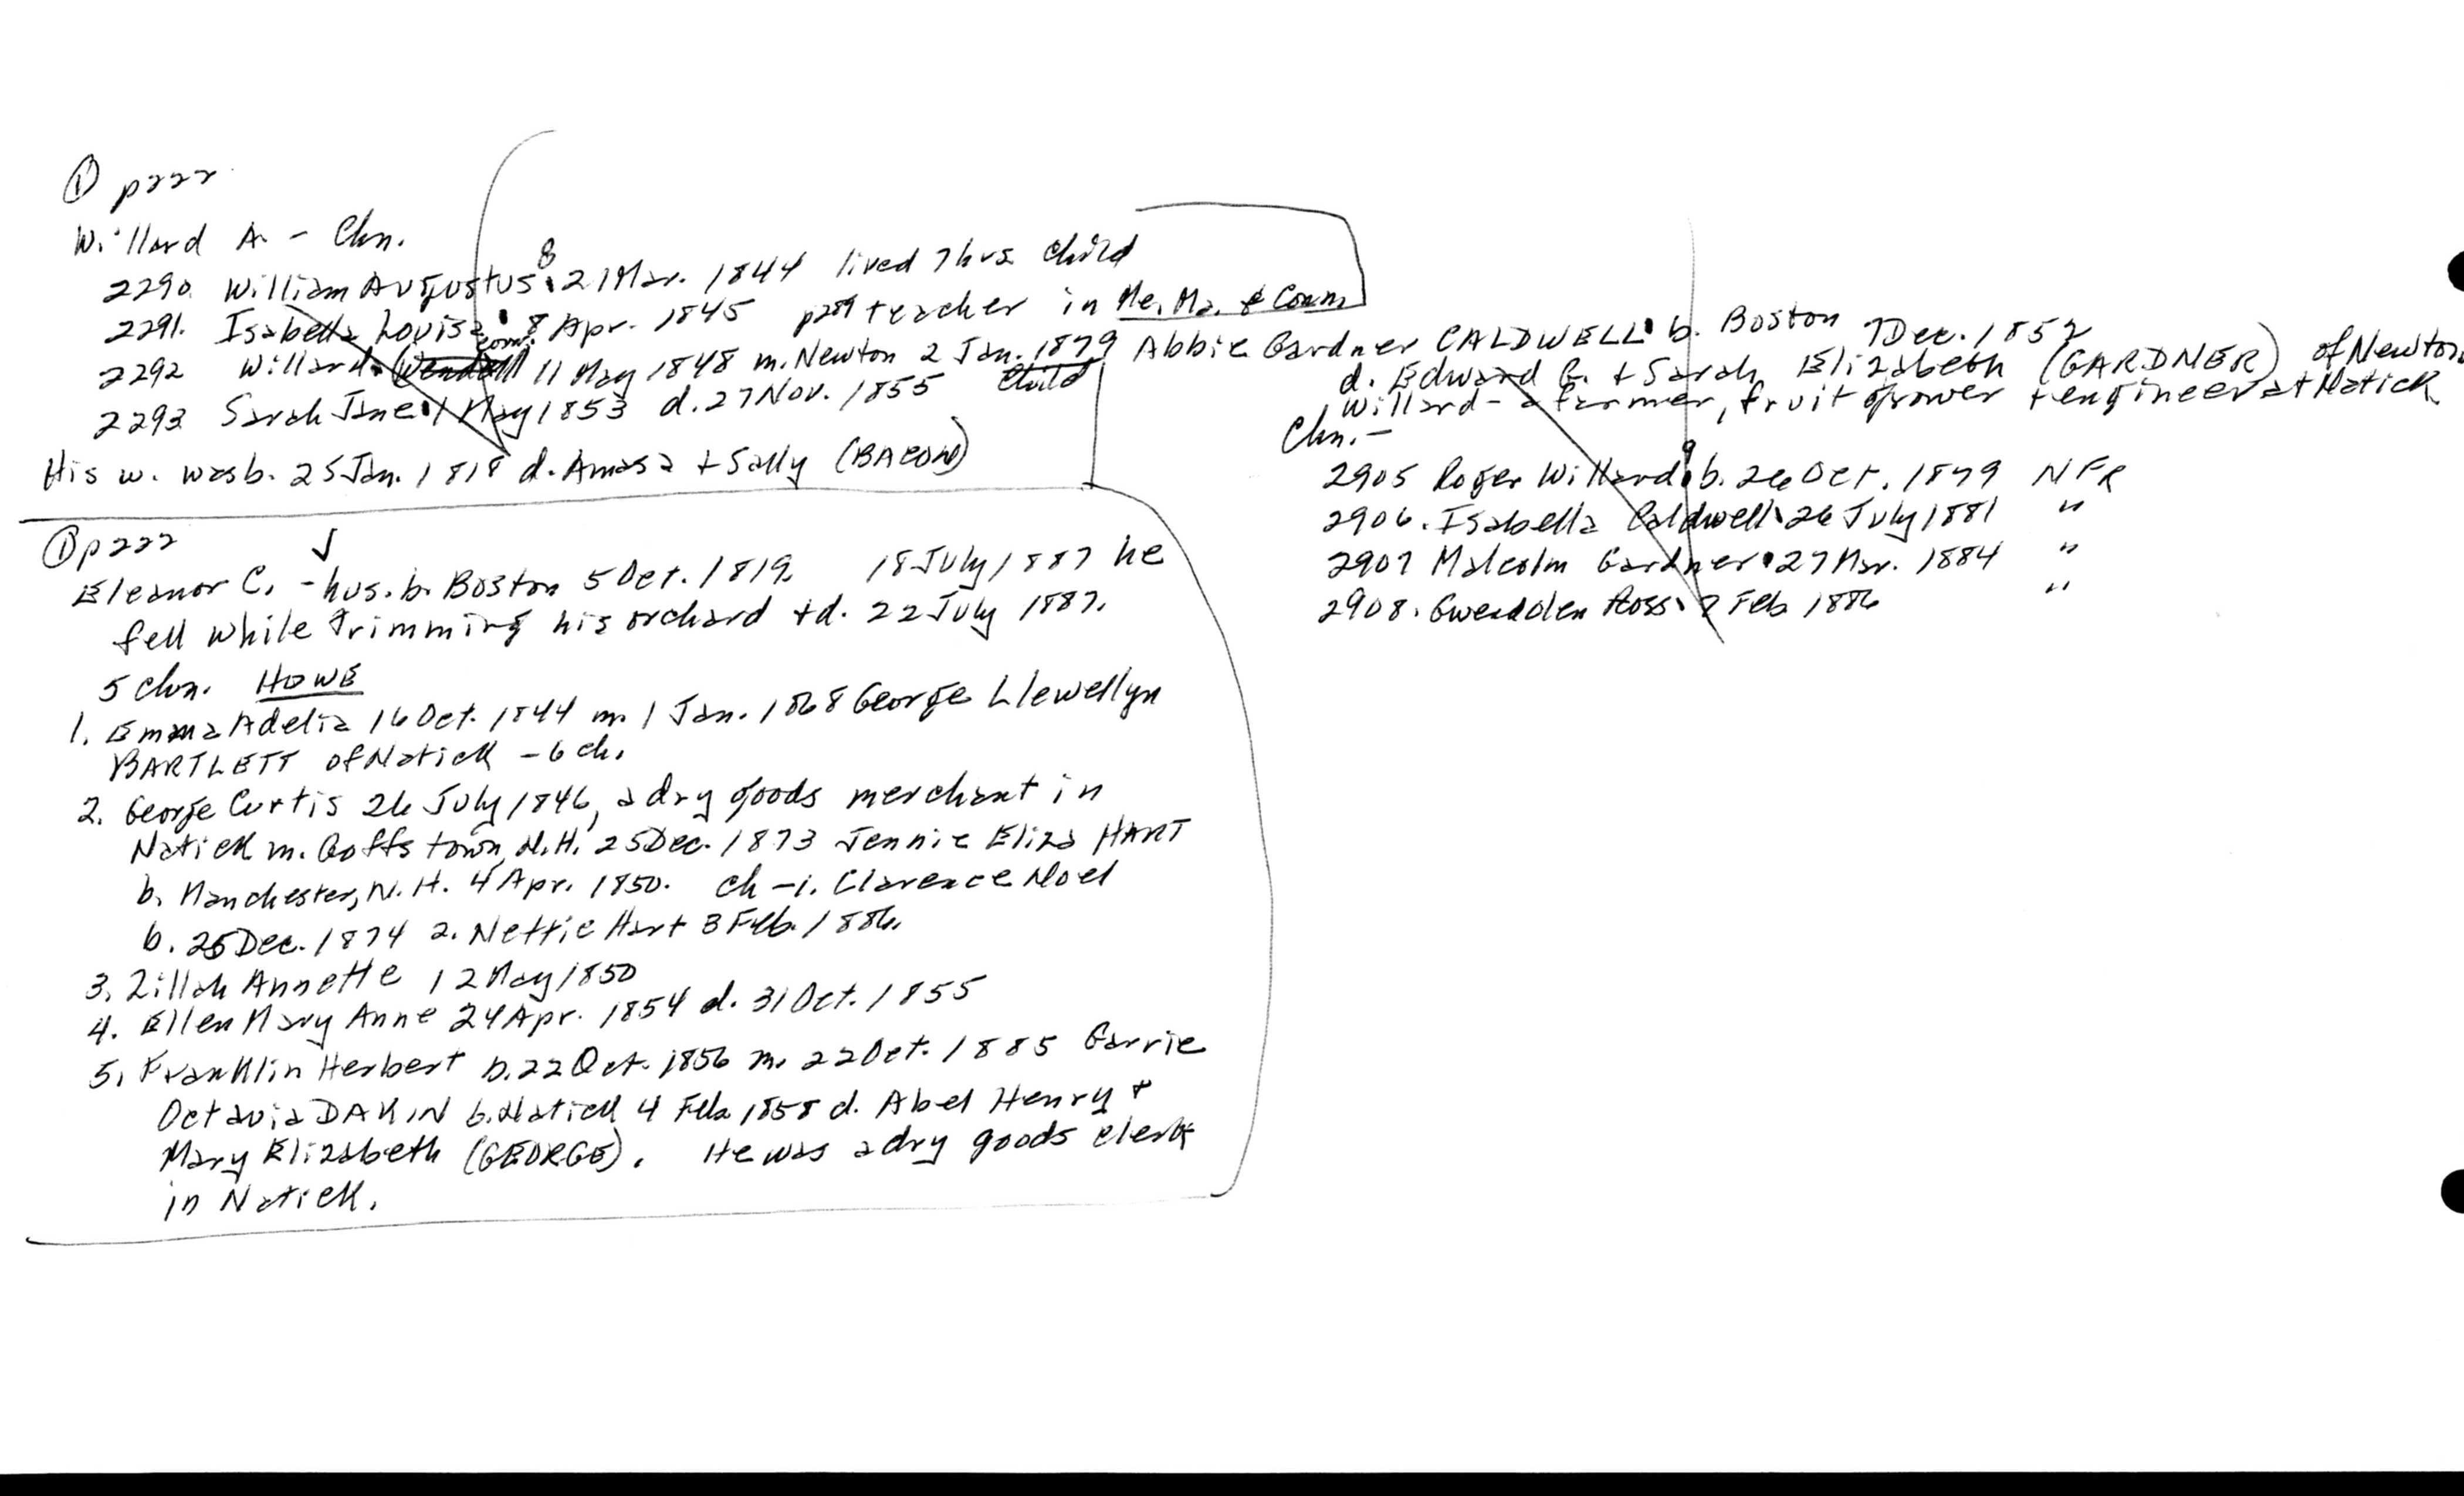 ① p222
Willard A. - Chn.
2290. William Augustus⁸ 21 Mar. 1844 lived 7 hrs child
2291. Isabella Louisa 8 Apr. 1845 p289 teacher in Me. Ma. & Conn
2292 Willard (Wendall) 11 May 1848 m. Newton 2 Jan. 1879 Abbie Gardner CALDWELL b. Boston 7 Dec. 1852
d. Edward C. + Sarah Elizabeth (GARDNER) of Newton
Willard - a farmer, fruit grower + engineer at Natick
2293 Sarah Jane 1 May 1853 d. 27 Nov. 1855 child
His w. was b. 25 Jan. 1818 d. Amasa + Sally (BACON)
Chn. -
2905 Roger Willard⁹ b. 26 Oct. 1879 NFR
2906. Isabella Caldwell 26 July 1881 "
2907 Malcolm Gardner 27 Mar. 1884 "
2908. Gwendolen Ross 2 Feb 1886 "
① p222
Eleanor C. - hus. b. Boston 5 Oct. 1819. 18 July 1887 he
fell while trimming his orchard + d. 22 July 1887.
5 chn. HOWE
1. Emma Adelia 16 Oct. 1844 m. 1 Jan. 1868 George Llewellyn
BARTLETT of Natick - 6 ch.
2. George Curtis 26 July 1846, a dry goods merchant in
Natick m. Goffstown, N.H. 25 Dec. 1873 Jennie Eliza HART
b. Manchester, N.H. 4 Apr. 1850. ch - 1. Clarence Noel
b. 25 Dec. 1874 2. Nettie Hart 3 Feb. 1886.
3. Zillah Annette 12 May 1850
4. Ellen Mary Anne 24 Apr. 1854 d. 31 Oct. 1855
5. Franklin Herbert b. 22 Oct. 1856 m. 22 Oct. 1885 Carrie
Octavia DAKIN b. Natick 4 Feb. 1858 d. Abel Henry +
Mary Elizabeth (GEORGE). He was a dry goods clerk
in Natick.